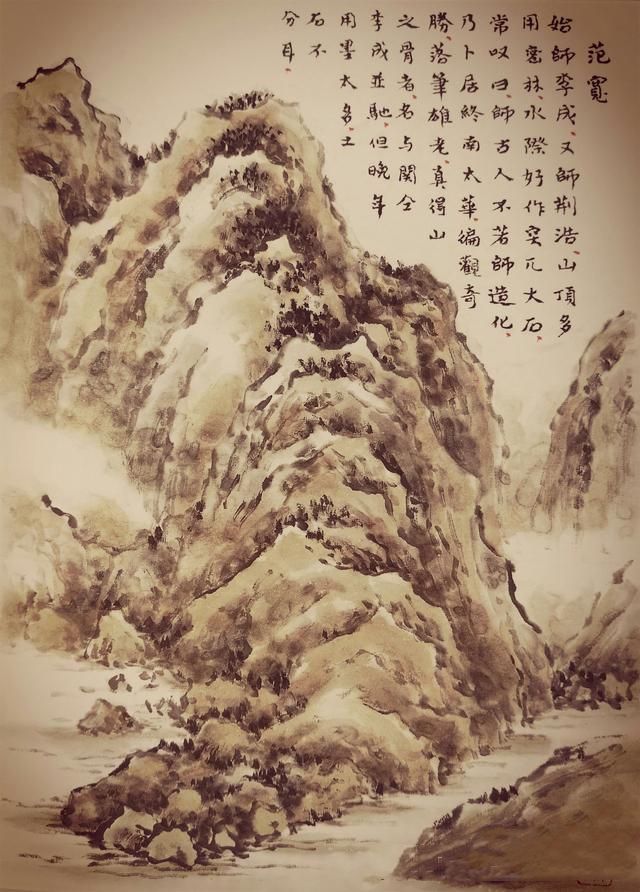 范寬
始師李成又師荊浩山頂多
用密林水際好作突兀大石
常叹曰師古人不若師造化
乃卜居終南太華徧觀奇
勝落筆雄老真得山
之骨者名与関仝
李成並馳但晚年
用墨太多土
石不
分耳